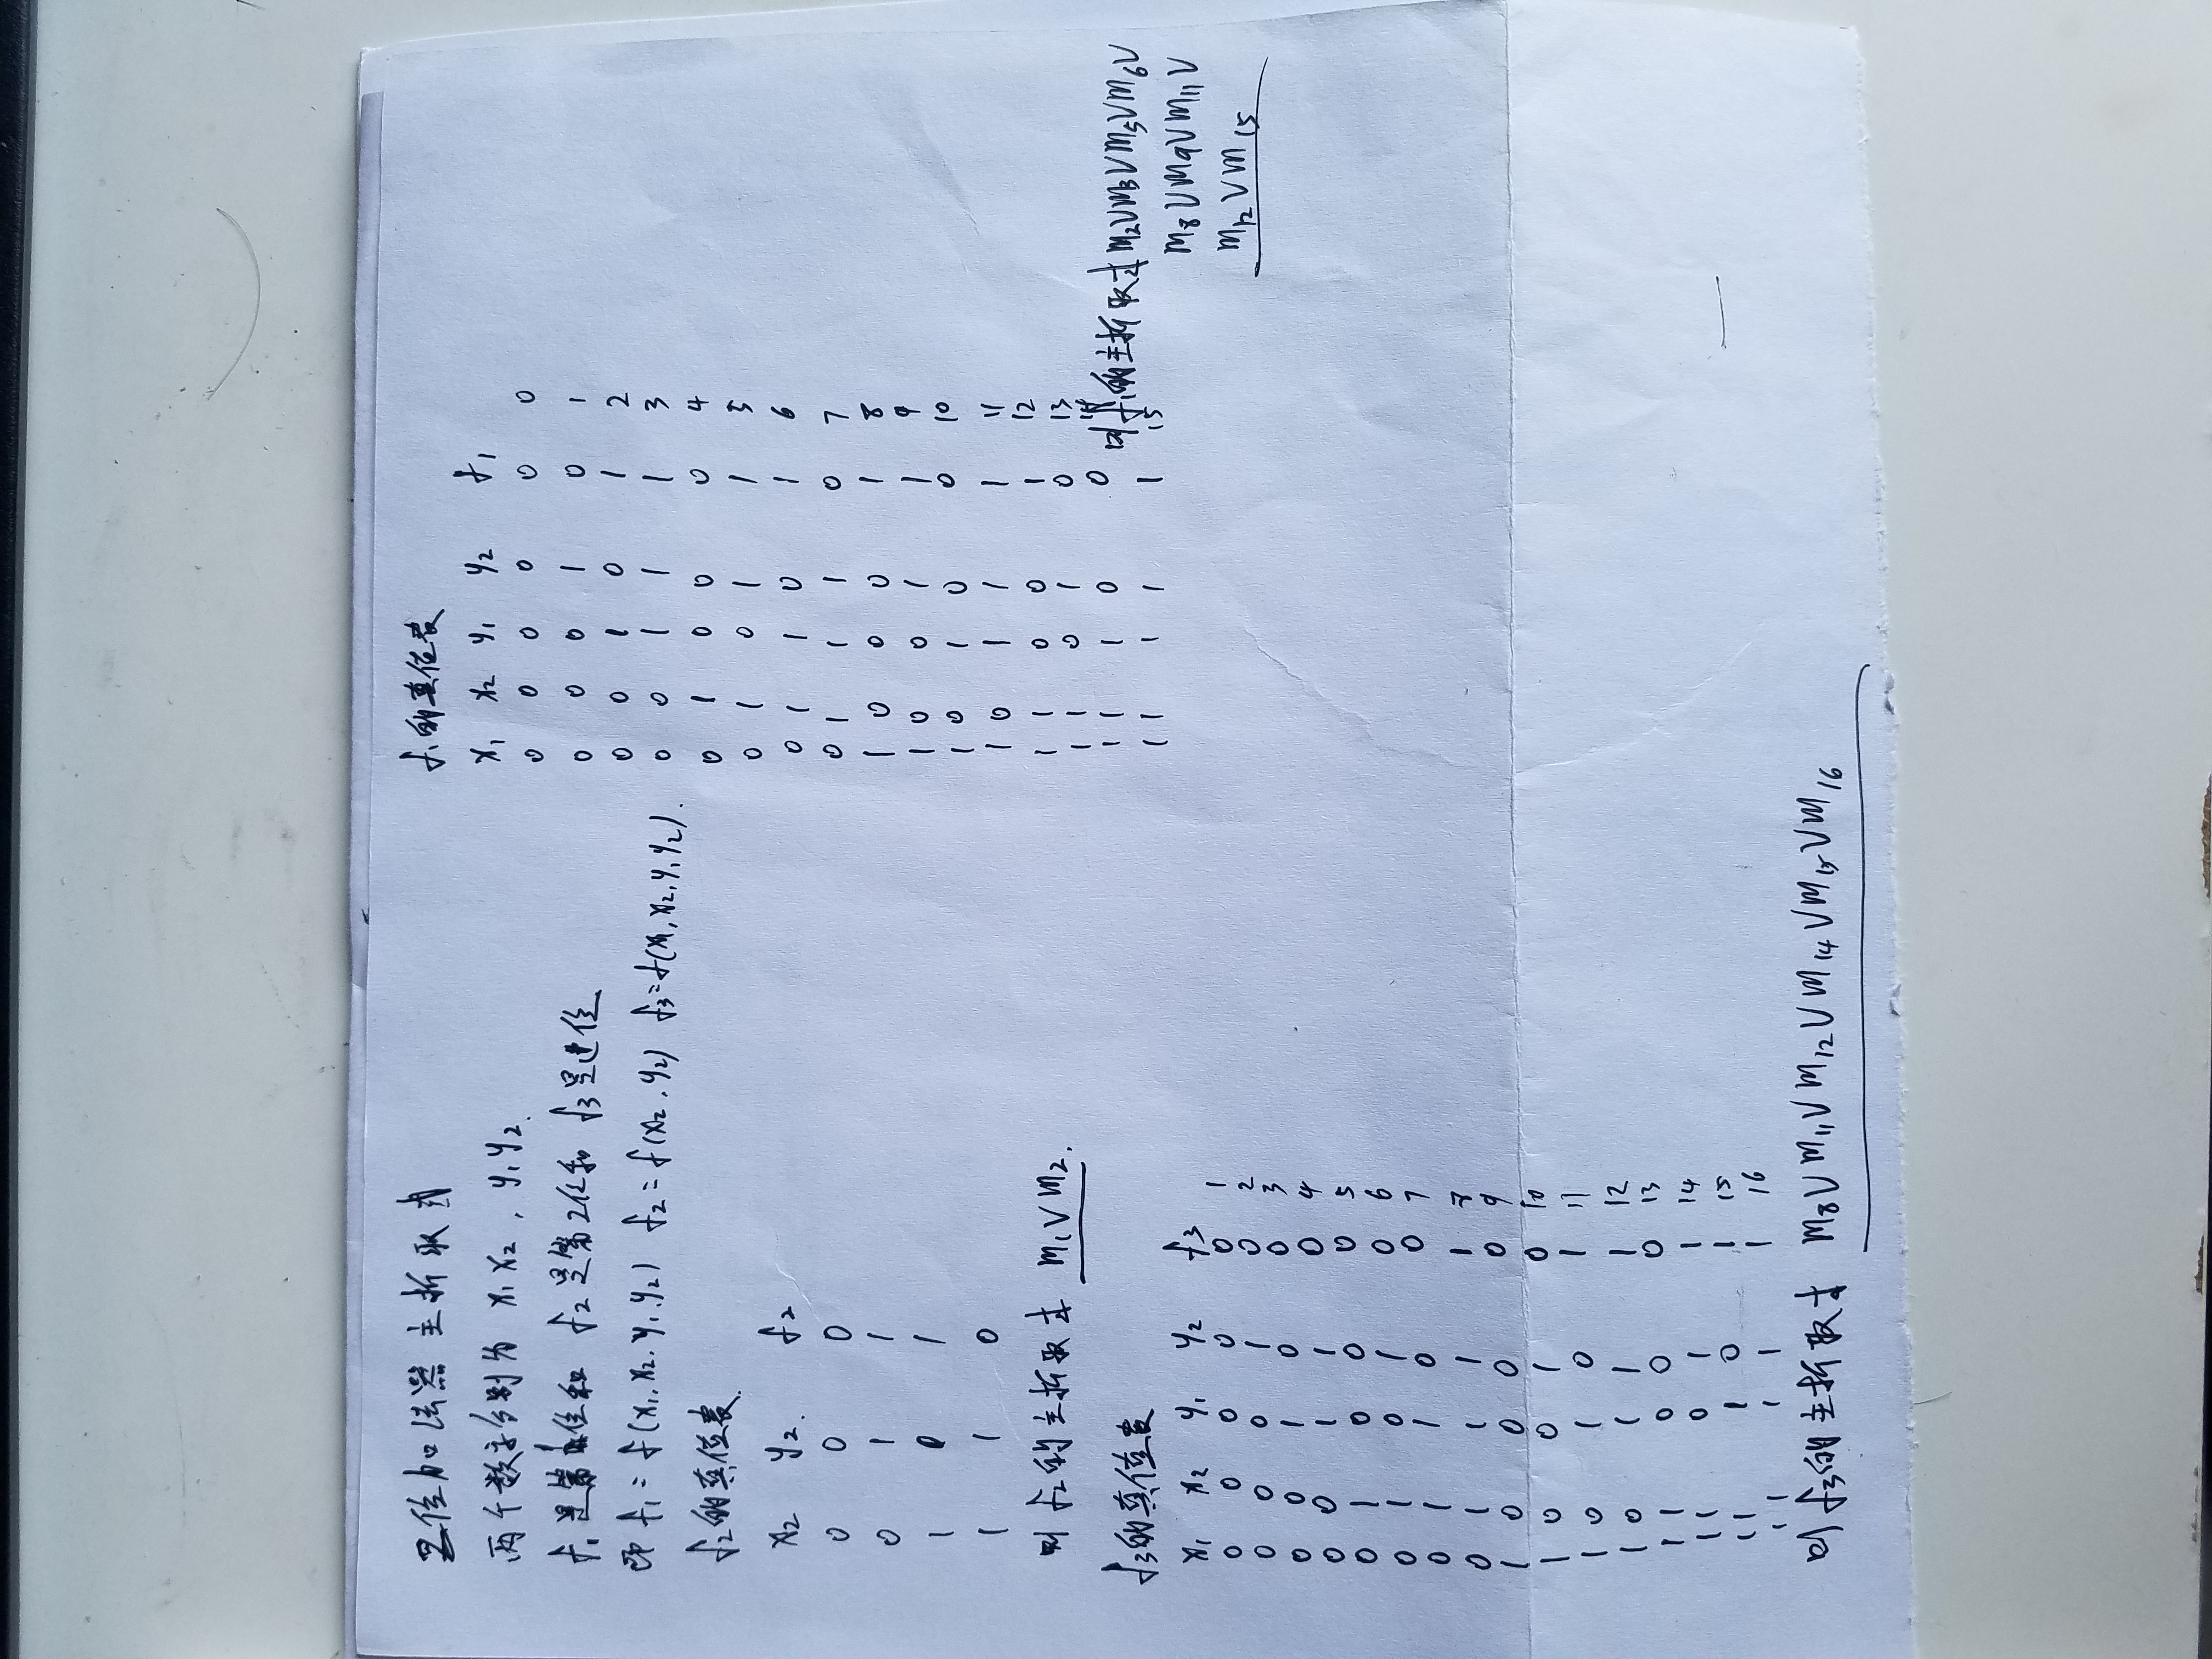 二位加法器主析取式
两个数字分别为 x₁x₂, y₁y₂.
f₁是第1位和 f₂是第2位和 f₃是进位
即 f₁=f(x₁,x₂,y₁,y₂) f₂=f(x₂,y₂) f₃=f(x₁,x₂,y₁,y₂).
f₂的真值表.
x₂ y₂. f₂
0 0 0
0 1 1
1 0 1
1 1 0
则 f₂的主析取式 m₁∨m₂.
f₃的真值表
x₁ x₂ y₁ y₂ f₃
0 0 0 0 0 1
0 0 0 1 0 2
0 0 1 0 0 3
0 0 1 1 0 4
0 1 0 0 0 5
0 1 0 1 0 6
0 1 1 0 0 7
0 1 1 1 1 8
1 0 0 0 0 9
1 0 0 1 0 10
1 0 1 0 1 11
1 0 1 1 1 12
1 1 0 0 0 13
1 1 0 1 1 14
1 1 1 0 1 15
1 1 1 1 1 16
则 f₃的主析取式 m₈∨m₁₁∨m₁₂∨m₁₄∨m₁₅∨m₁₆
f₁的真值表
x₁ x₂ y₁ y₂ f₁
0 0 0 0 0 0
0 0 0 1 0 1
0 0 1 0 1 2
0 0 1 1 1 3
0 1 0 0 0 4
0 1 0 1 1 5
0 1 1 0 1 6
0 1 1 1 0 7
1 0 0 0 1 8
1 0 0 1 1 9
1 0 1 0 0 10
1 0 1 1 1 11
1 1 0 0 1 12
1 1 0 1 0 13
1 1 1 0 0 14
1 1 1 1 1 15
则f₁的主析取式m₂∨m₃∨m₅∨m₆∨
m₈∨m₉∨m₁₁∨
m₁₂∨m₁₅